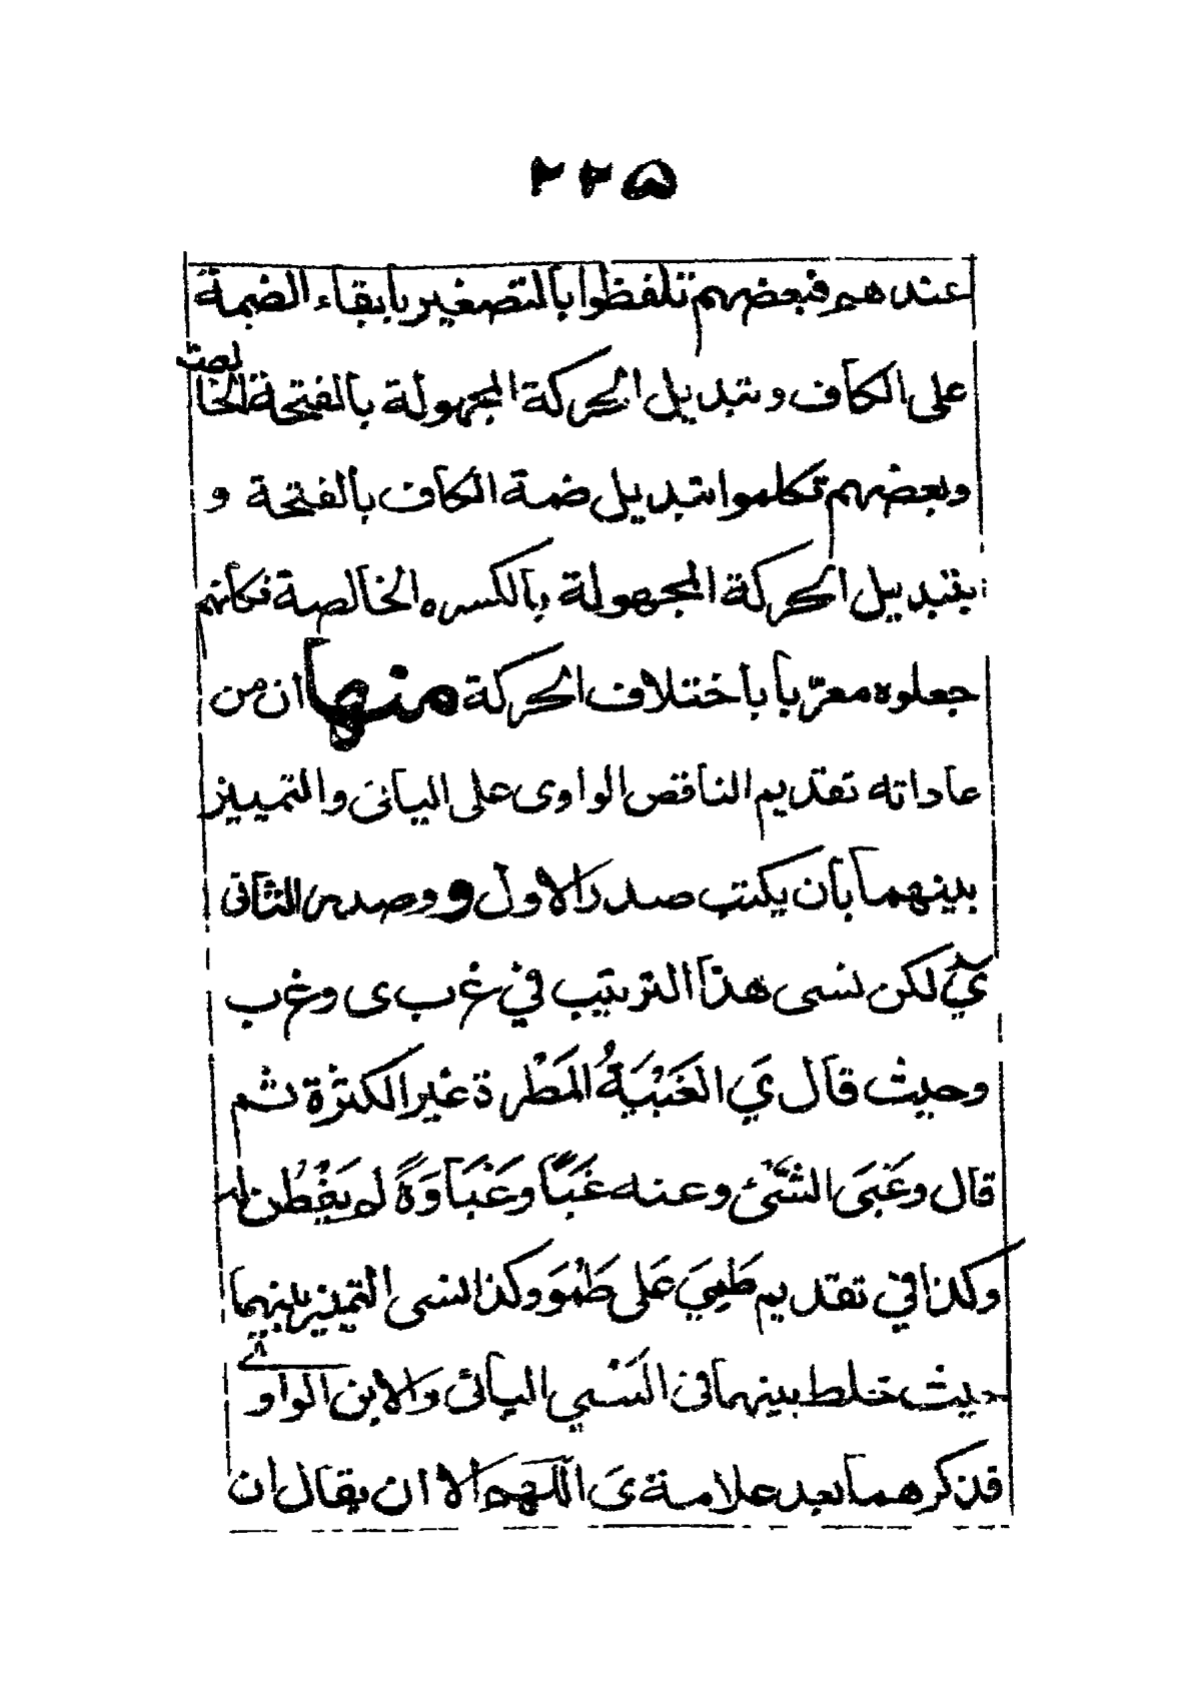 ٢٢٥
عندهم فبعضهم تلفظوا بالتصغير بابقاء الضمة
على الكاف وتبديل الحركة المجهولة بالفتحة الخالصة
وبعضهم تكلموا بتبديل ضمة الكاف بالفتحة و
بتبديل الحركة المجهولة بالكسره الخالصة فكأنهم
جعلوه معرّبا باختلاف الحركة منها ان من
عاداته تقديم الناقص الواوى على اليائى والتمييز
بينهما بأن يكتب صدر الاول و وصدر الثانى
يَ لكن نسى هذا الترتيب في غ ب ى و غ ب
وحيث قال يَ الغَبْيَةُ المَطْرة غير الكثرة ثم
قال وغَبَى الشَّئ وعنه غَبًا وغَبَاوَةً لم يَفْطُن له
وكذا في تقديم طَبيَ على طَبْوَ وكذا نسى التمييز بينهما
حيث خلط بينهما فى النَسْي اليائى والابن الواوى
قد ذكرهما بعد علامة ىَ اللّهم الا ان يقال ان